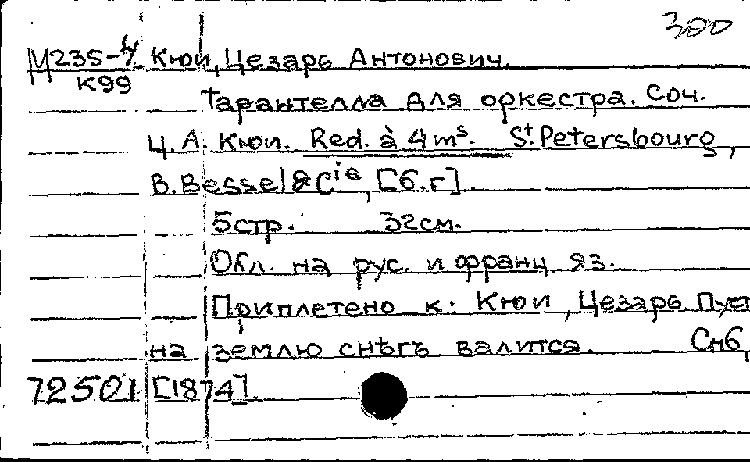 300
M235-4 Кюи, Цезарь Антонович.
К99
Тарантелла для оркестра. Соч.
Ц. А. Кюи. Red. à 4 ms. St. Petersbourg,
B. Bessel & Cie, [б.г]
5стр. 32см.
Обл. на рус. и франц яз.
Приплетено к: Кюи, Цезарь Пуст
на землю снѣгъ валится. Спб,
72501 [1874].